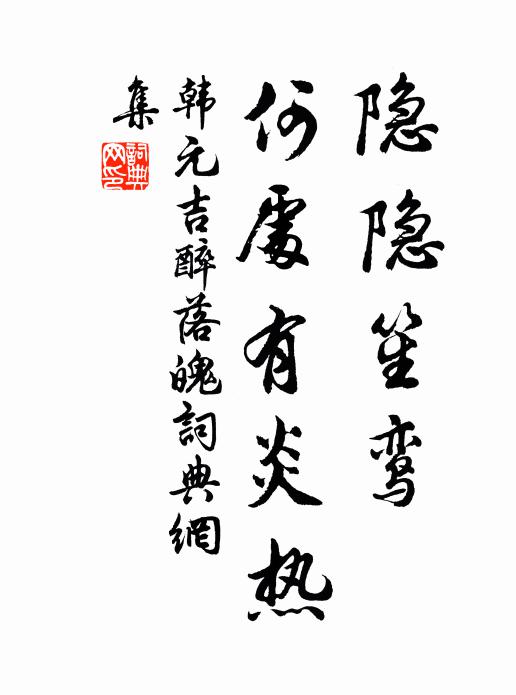 隐隐笙鸾
何處有炎热
韩元吉醉落魄詞典網
集
詞典网印